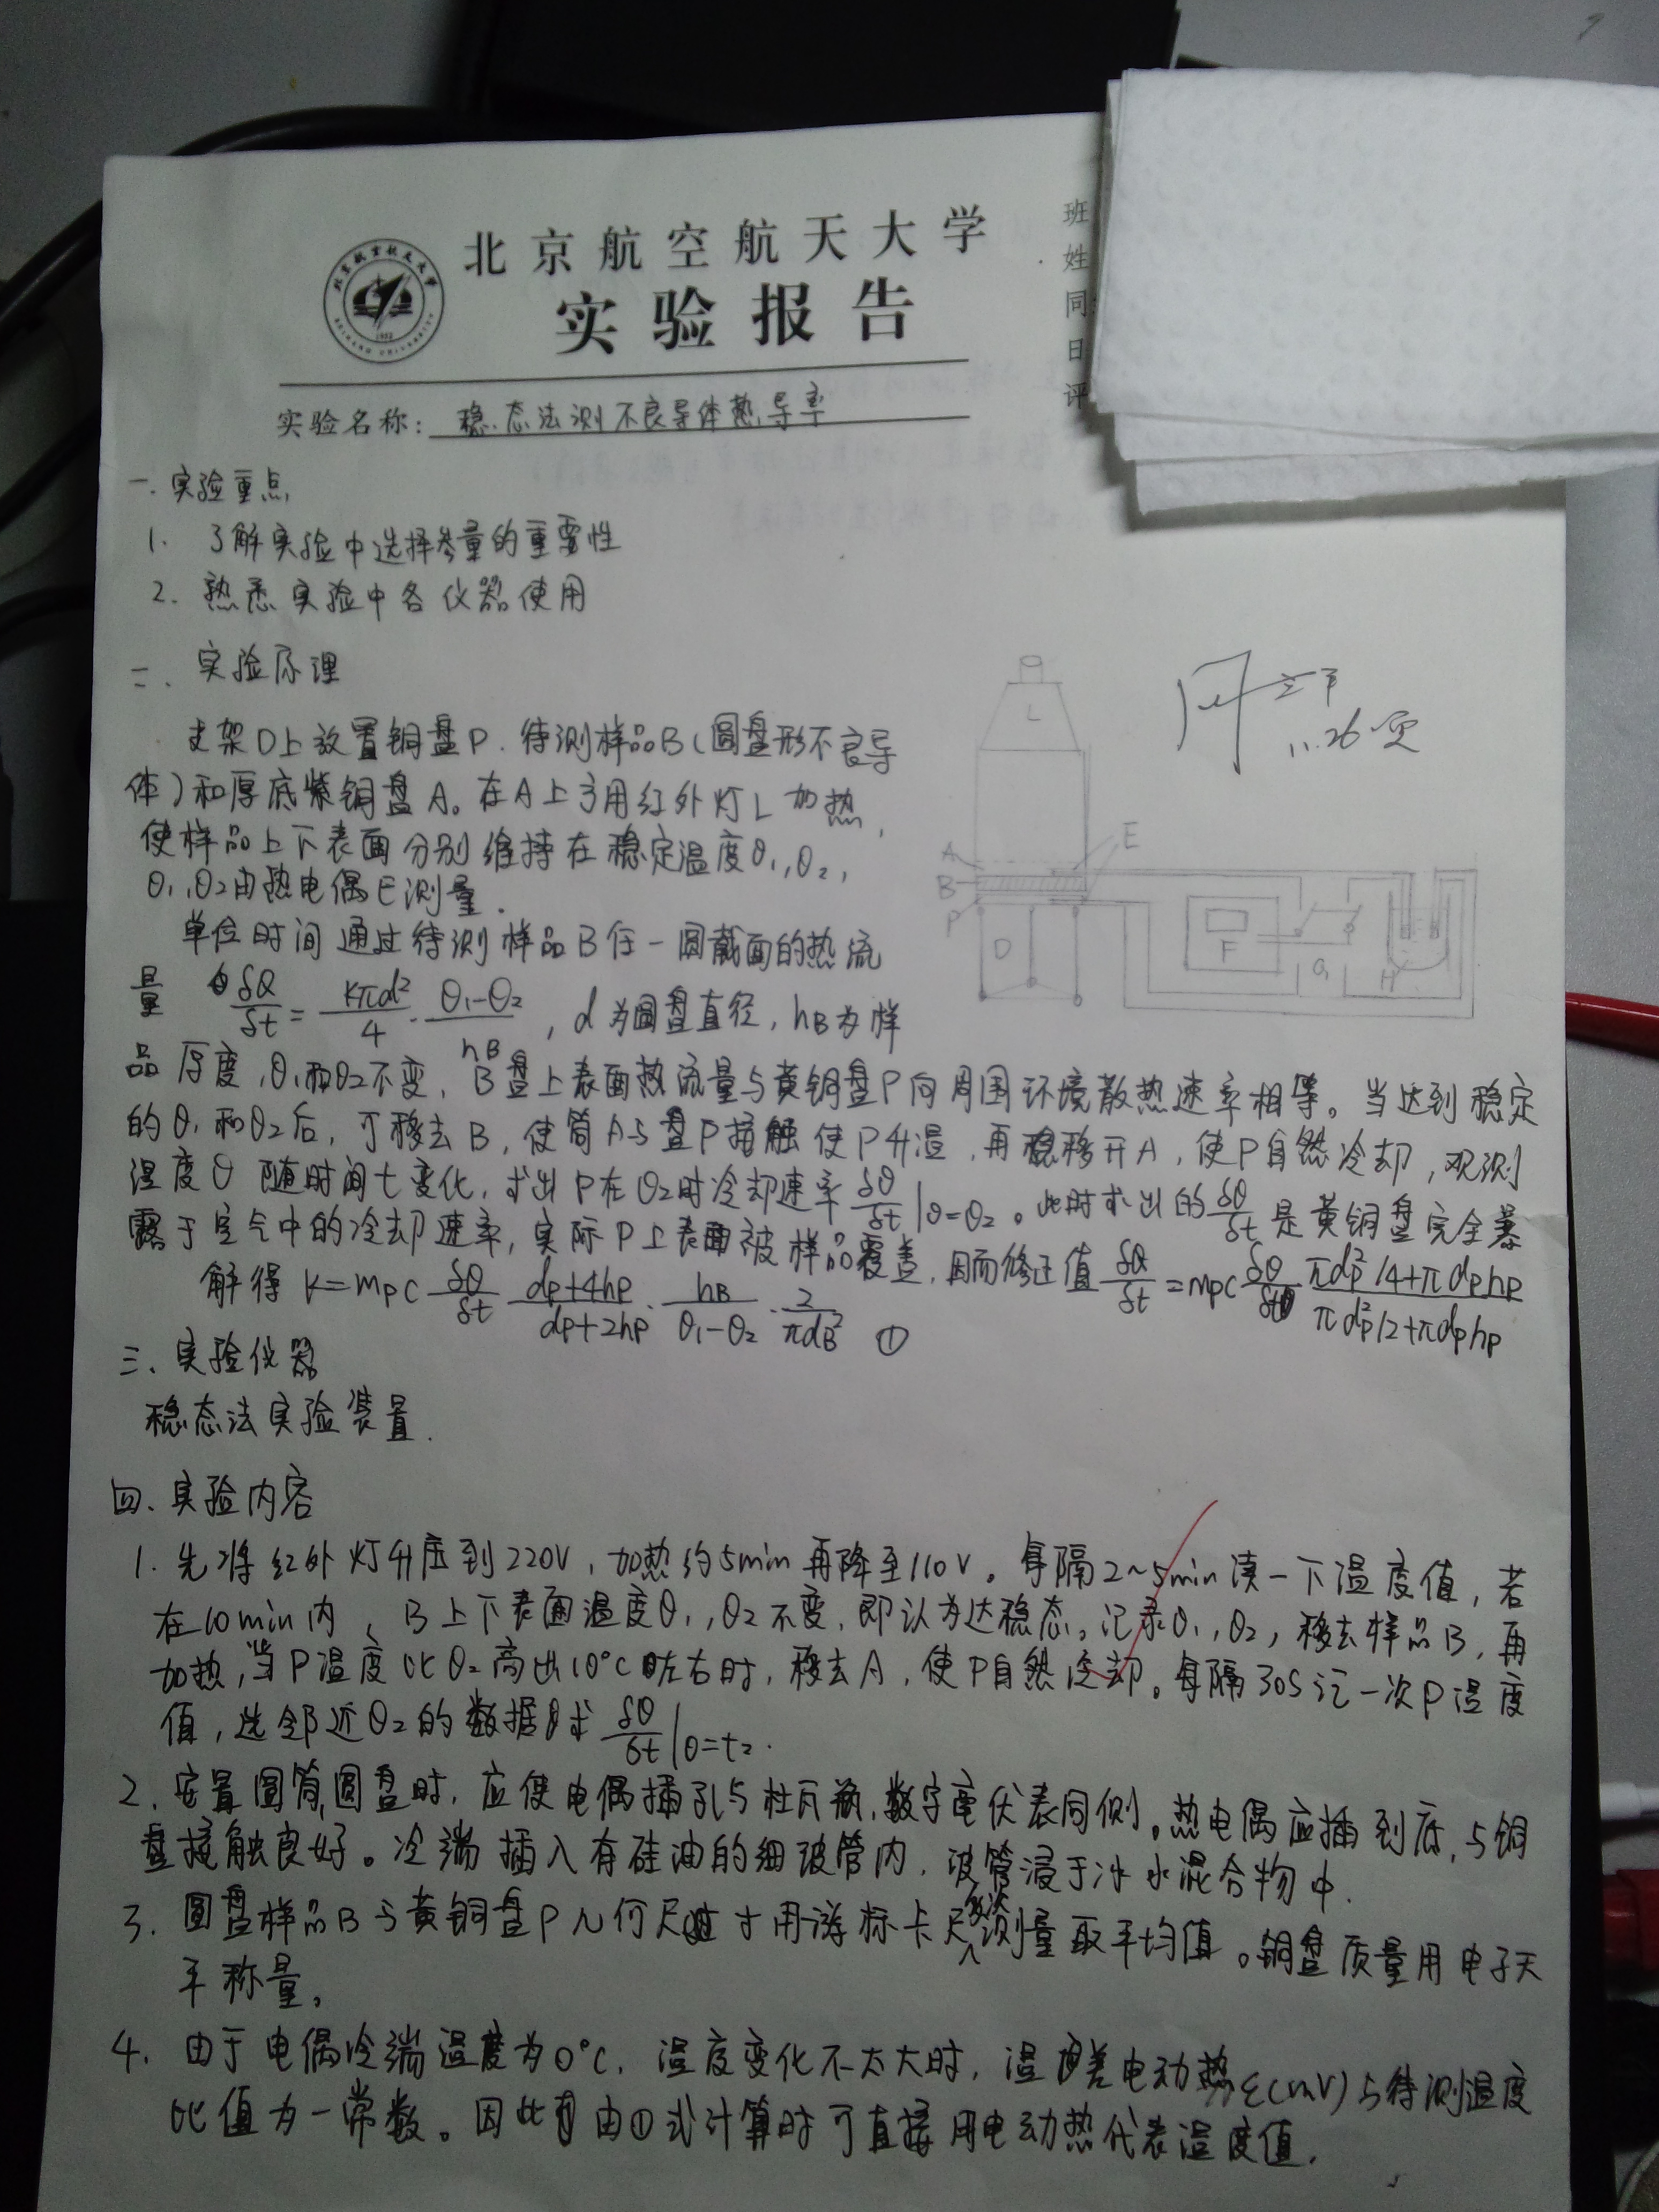 北京航空航天大学
实验报告
班
姓
同
日
评
实验名称: 稳态法测不良导体热导率
一. 实验重点
1. 了解实验中选择参量的重要性
2. 熟悉实验中各仪器使用
二. 实验原理
支架D上放置铜盘P. 待测样品B(圆盘形不良导
体)和厚底紫铜盘A。在A上方用红外灯L加热,
使样品上下表面分别维持在稳定温度θ₁,θ₂,
θ₁,θ₂由热电偶E测量.
单位时间通过待测样品B任一圆截面的热流
量 δQ/δt = Kπd²/4 · (θ₁-θ₂)/hB , d为圆盘直径, hB为样
品厚度,θ₁和θ₂不变, B盘上表面热流量与黄铜盘P向周围环境散热速率相等。当达到稳定
的θ₁和θ₂后, 可移去B, 使筒A与盘P接触使P升温, 再移开A, 使P自然冷却, 观测
温度θ随时间t变化, 求出P在θ₂时冷却速率 δθ/δt|θ=θ₂。此时求出的δθ/δt是黄铜盘完全暴
露于空气中的冷却速率, 实际P上表面被样品覆盖, 因而修正值 δQ/δt = mpc δθ/δt (πdp²/4+πdphp)/(πdp²/2+πdphp)
解得 K=mpc δθ/δt · (dp+4hp)/(dp+2hp) · hB/(θ₁-θ₂) · 2/(πdB²) ①
L
A
B
P
D
E
F
G
H
11.26
三、实验仪器
稳态法实验装置.
四、实验内容
1. 先将红外灯升压到220V, 加热约5min再降至110V。每隔2~5min读一下温度值, 若
在10min内, B上下表面温度θ₁,θ₂不变, 即认为达稳态。记录θ₁,θ₂, 移去样品B, 再
加热, 当P温度比θ₂高出10℃左右时, 移去A, 使P自然冷却。每隔30s记一次P温度
值, 选邻近θ₂的数据求 δθ/δt|θ=t₂.
2. 安置圆筒,圆盘时, 应使电偶插孔与杜瓦瓶,数字电伏表同侧。热电偶应插到底, 与铜
盘接触良好。冷端插入有硅油的细玻管内, 玻管浸于冰水混合物中.
3. 圆盘样品B与黄铜盘P几何尺寸用游标卡尺多次测量取平均值。铜盘质量用电子天
平称量。
4. 由于电偶冷端温度为0℃, 温度变化不太大时, 温差电动热ε(mV)与待测温度
比值为一常数。因此由①式计算时可直接用电动热代表温度值.